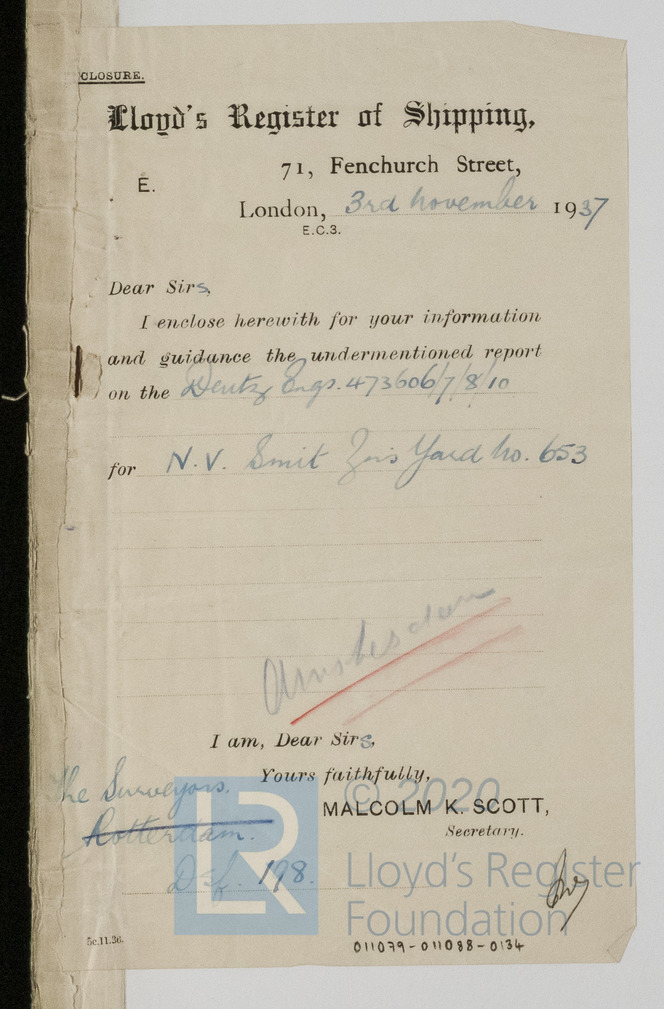 CLOSURE.
Lloyd's Register of Shipping,
71, Fenchurch Street,
E.
London, 3rd November 1937
E.C.3.
Dear Sirs,
I enclose herewith for your information
and guidance the undermentioned report
on the Deutz Engs. 473606/7/8/10
for N.V. Smit Zns Yard No. 653
Amsterdam
I am, Dear Sirs,
Yours faithfully,
MALCOLM K. SCOTT,
Secretary.
The Surveyors.
Rotterdam.
198.
5c.11.36.
© 2020
LR
Lloyd's Register
Foundation
011079-011088-0134